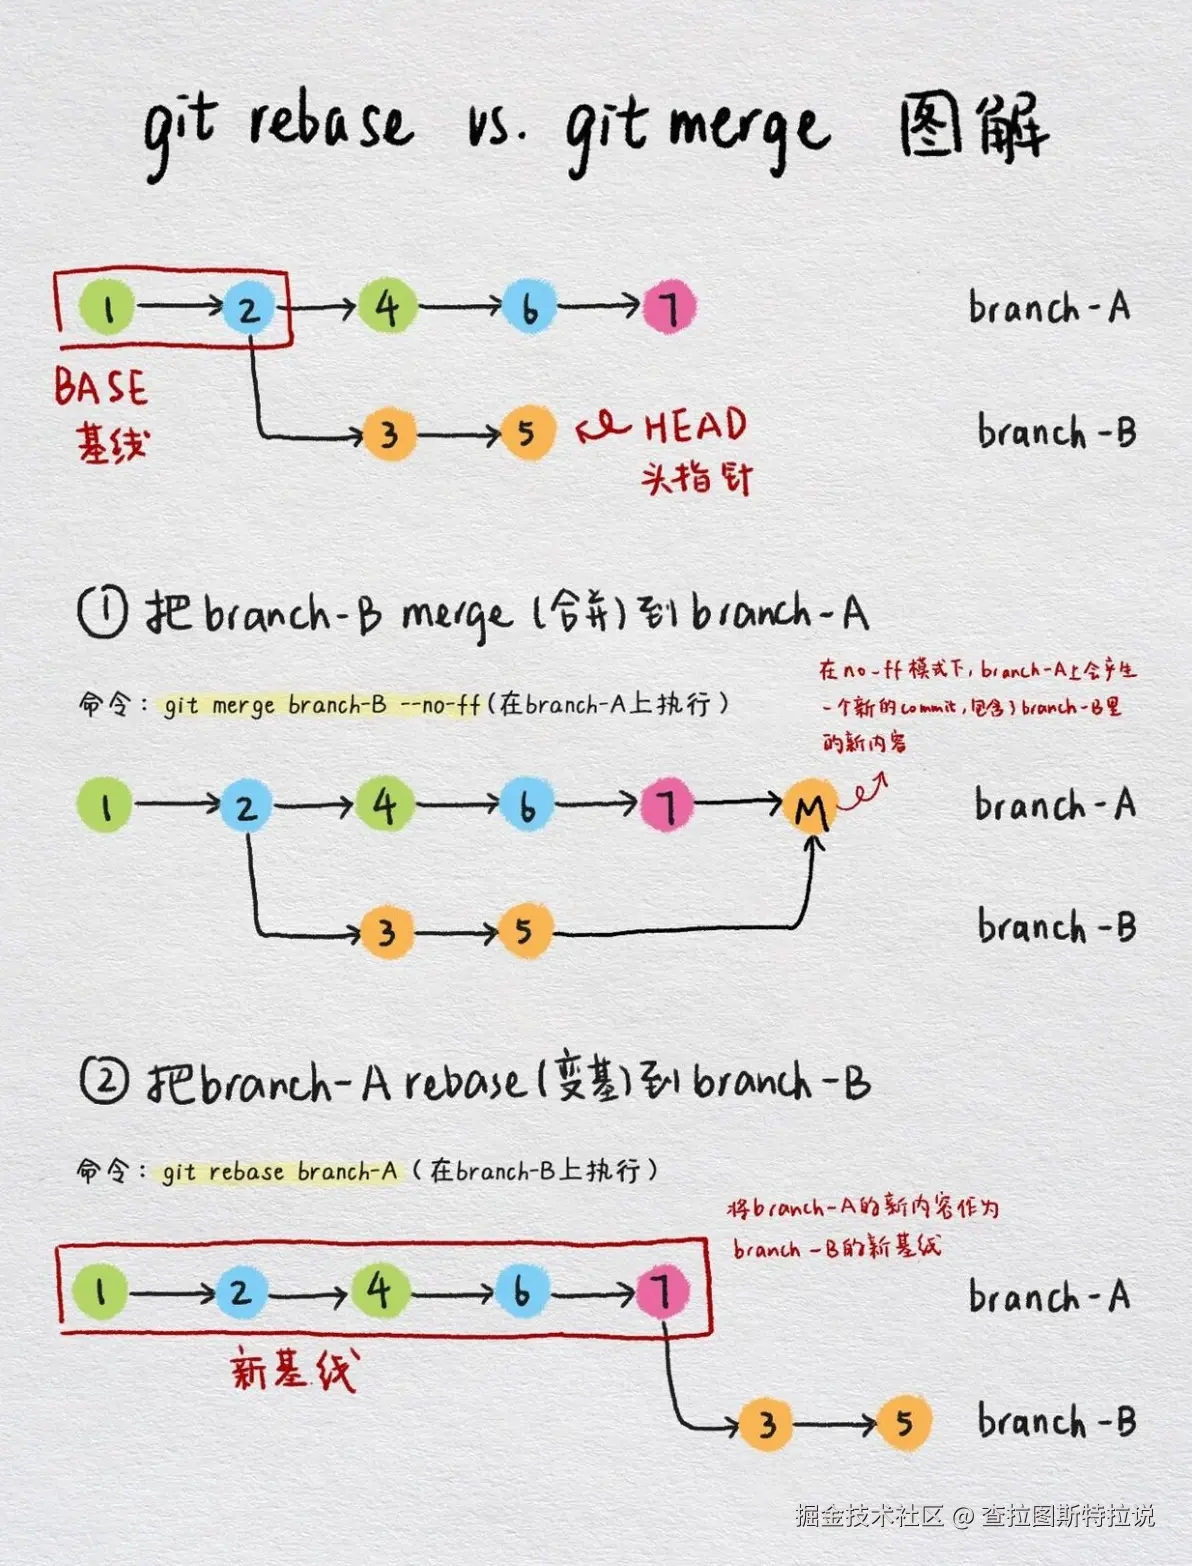 git rebase vs. git merge 图解
1 2 4 6 7 branch-A
BASE
基线
3 5 HEAD branch-B
头指针
① 把branch-B merge(合并)到branch-A
在no-ff模式下,branch-A上会产生
一个新的commit,包含了branch-B里
的新内容
命令: git merge branch-B --no-ff(在branch-A上执行)
1 2 4 6 7 M branch-A
3 5 branch-B
② 把branch-A rebase(变基)到branch-B
命令: git rebase branch-A (在branch-B上执行)
将branch-A的新内容作为
branch-B的新基线
1 2 4 6 7 branch-A
新基线
3 5 branch-B
掘金技术社区 @ 查拉图斯特拉说